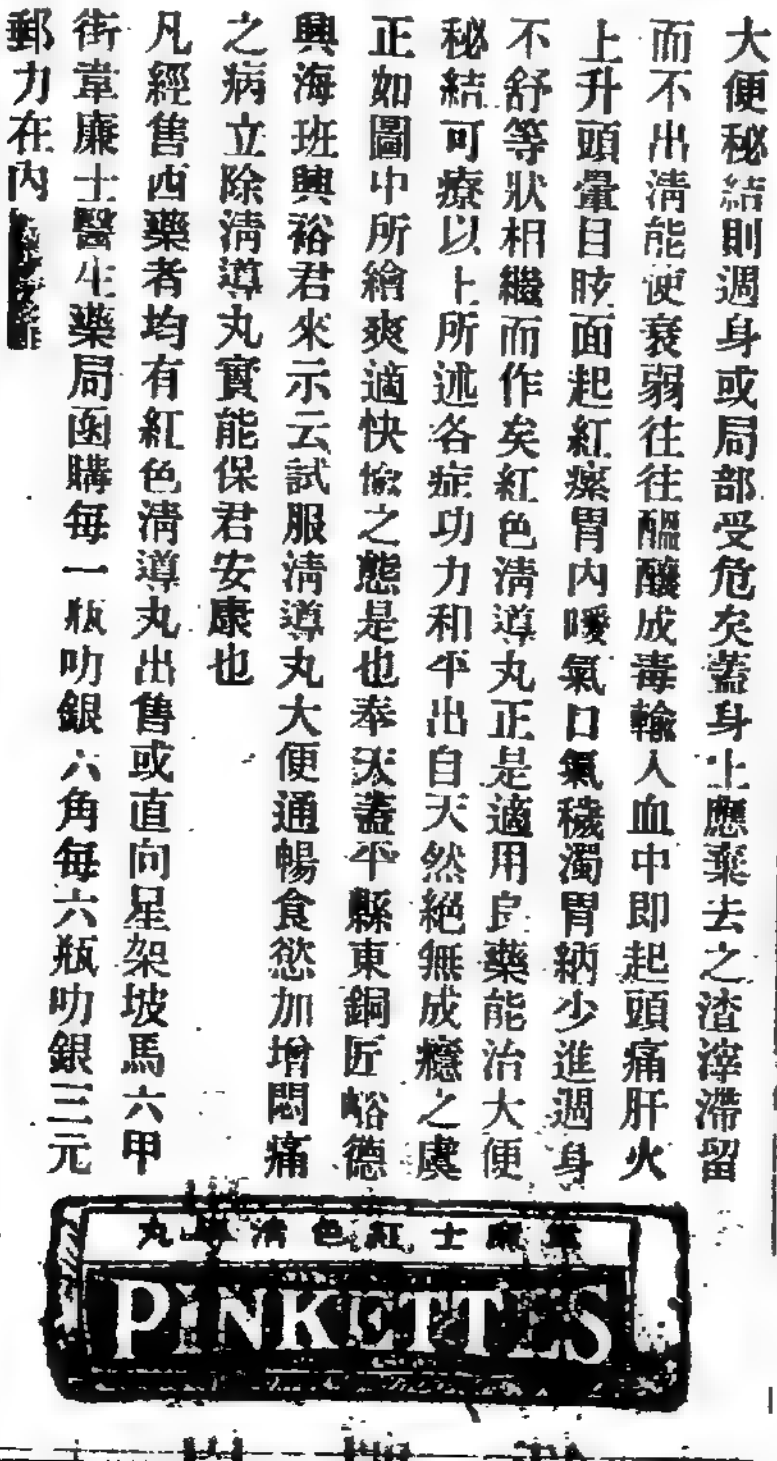 大便秘結則週身或局部受危矣蓋身上應棄去之渣滓滯留
而不出淸能使衰弱往往醞釀成毒輸入血中卽起頭痛肝火
上升頭暈目眩面起紅瘰胃內噯氣口氣穢濁胃納少進週身
不舒等狀相繼而作矣紅色淸導丸正是適用良藥能治大便
秘結可療以上所述各症功力和平出自天然絕無成癮之虞
正如圖中所繪爽適快愉之態是也奉天蓋平縣東銅匠峪德
興海班興裕君來示云試服淸導丸大便通暢食慾加增悶痛
之病立除淸導丸實能保君安康也
凡經售西藥者均有紅色淸導丸出售或直向星架坡馬六甲
街韋廉士醫生藥局函購每一瓶叻銀六角每六瓶叻銀三元
郵力在內
韋廉士紅色淸導丸
PINKETTES